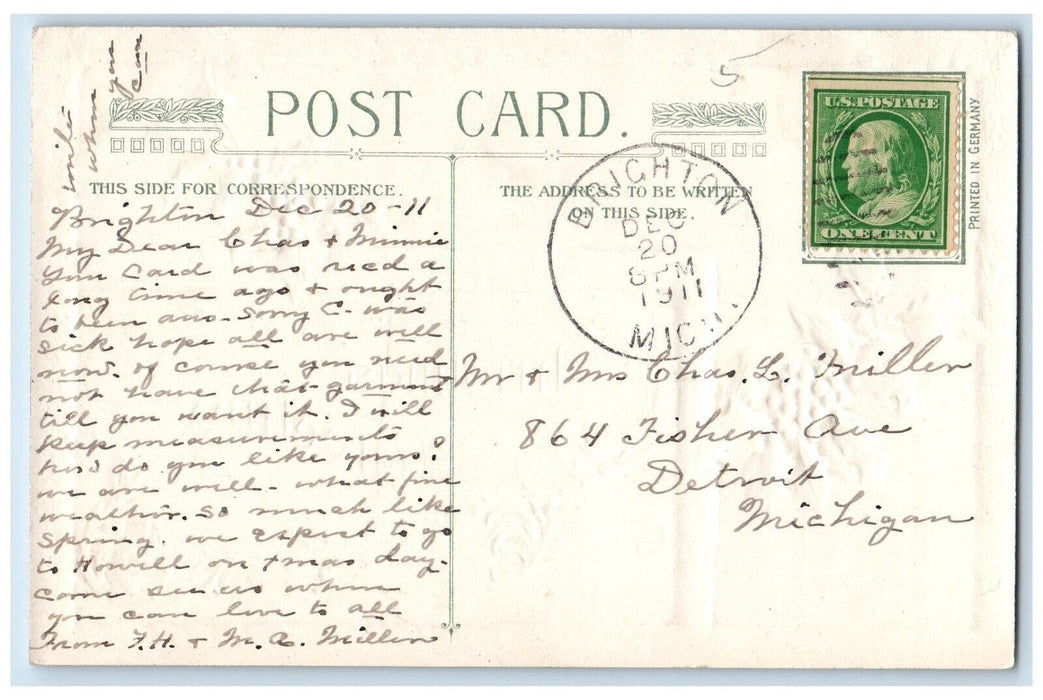 write
when
you
can
5
POST CARD.
U.S. POSTAGE
ONE CENT
PRINTED IN GERMANY
THIS SIDE FOR CORRESPONDENCE.
THE ADDRESS TO BE WRITTEN
ON THIS SIDE.
BRIGHTON
DEC
20
8 PM
1911
MICH.
Brighton Dec 20-11
My Dear Chas & Minnie
Your Card was recd a
long time ago & ought
to been ans. Sorry C. was
sick hope all are well
now. of course you need
not have that garment
till you want it. I will
keep measurements
how do you like yours?
we are well - what fine
weather. so much like
Spring. we expect to go
to Howell on Xmas day.
come see us when
you can love to all
From F.H. & M.A. Miller
Mr & Mrs Chas. L. Miller
864 Fisher Ave
Detroit
Michigan